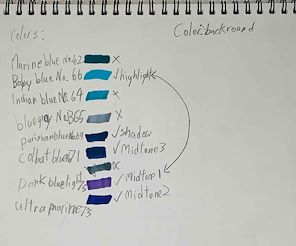 Colors:
Color: background
Marine blue No.62 X
Baby blue No. 66 ✓ highlight
Indian blue No. 64 X
bluegray No.365 X
parisian blue No.69 ✓ shadow
Cobalt blue 71 ✓ Midtone 3
X
Dark blue light ✓ Midtone 1
ultramarine 73 ✓ Midtone 2